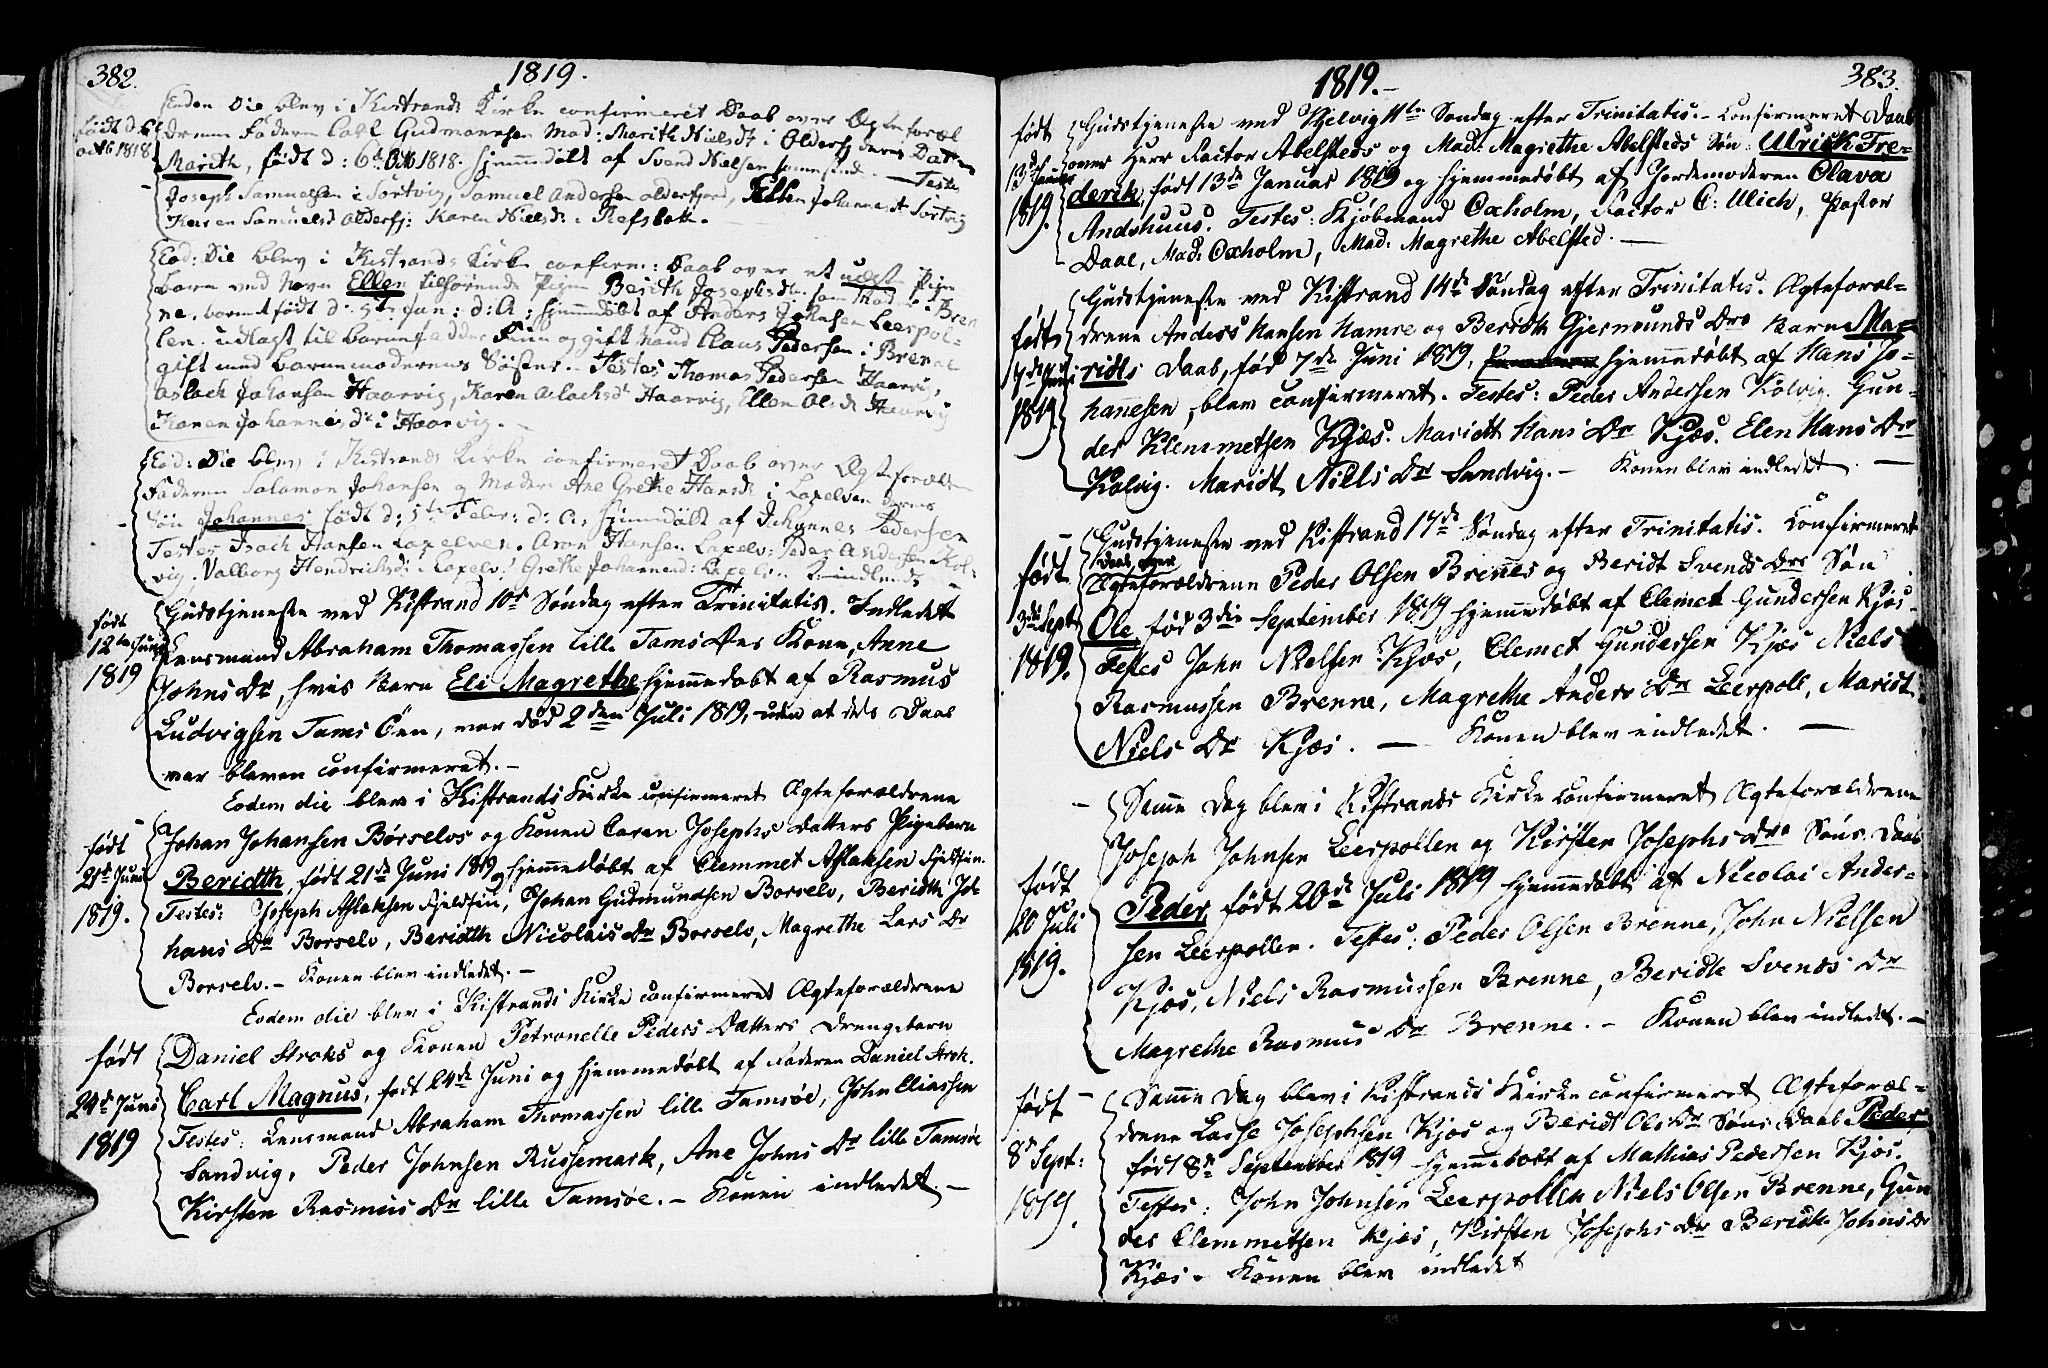 382.
1819.
Eodem Die blev i Kistrands Kirke confirmeret Daab over Ægteforæl
født d. 6t
octb 1818
drenes Faderen Carl Gudmannsen Mod: Marith Nielsdt i Olderfj deres Datter
Marith, født d: 6t Octb 1818. hjemmedøbt af Svend Nielsen sammesteds. — Teste
Joseph Samuelsen i Sortvig, Samuel Andersen olderfjord, Johannes Sortvig
Karen Samuelsd Olderfj: Karen Nielsd: i Refsbotn.
Eod: Die blev i Kistrands Kirke confirm: Daab over et uægte Pige
barn ved navn Ellen tilhørende Pigen Berith Josephsdtr. i Bren
ne, barnet født d: 5te Jan: d: A: hjemmedøbt af Anders Johnsen Leerpol-
len. udlagt til barnefader Finn og gift Mand Claus Pedersen i Brenne
gift med barnemoderens Søster. — Testes Thomas Pedersen Haarvig,
Aslach Johansen Haarvig, Karen Aslachsd: Haarvig, Ellen Olsd: Haarvig
Karen Johannesd: i Haarvig. —
Eod: Die blev i Kistrands Kirke confirmeret Daab over Ægteforæld
Faderen Salamon Johansen og Moder: Ane Grethe Hansd: i Laxelven deres
Søn Johannes født d: 5te Febr: d: A: hjemmedøbt af Johannes Pedersen
Testes Isach Hansen Laxelven. Aron Hansen Laxelv: Peder Andersen Kol-
vig. Valborg Hendrichsd: i Laxelv: Grethe Johannesd: Laxelven K: indledt
født
12te Juni
1819
Gudstjeneste ved Kistrand 10de Søndag efter Trinitatis. Indledet
Lensmand Abraham Thomassen lille Tamsøes Kone, Anne
Johns Dr, hvis Barn Eli Magrethe hjemmedøbt af Rasmus
Ludvigsen Tams Öen, var død 2den Juli 1819, uden at dets Daab
var bleven confirmeret. —
Eodem die blev i Kistrands Kirke confirmeret Ægteforældrene
født
21de Juni
1819.
Johan Johansen Börselvs og Konen Caren Josephs Datters Pigebarn
Beridth, født 21de Juni 1819 hjemmedøbt af Clemmet Aslaksen Fjeldfin.
Testes: Joseph Aslaksen Fjeldfin, Johan Gudmundsen Borselv, Beridth Jo-
hans Dr Borselv, Beridth Nicolais Dr Borselv, Magrethe Lars Dr
Borselv. — Konen blev indledet. —
Eodem die blev i Kistrands Kirke confirmeret Ægteforældrene
født
24de Juni
1819
Daniel Stroks og Konen Petronelle Peders Datters Drengebarn
Carl Magnus, født 24de Juni og hjemmedøbt af Faderen Daniel Strok.
Testes: Lensmand Abraham Thomassen lille Tamsöe, John Eliassen
Sandvig, Peder Johnsen Russemark, Ane Johns Dr lille Tamsöe
Kirsten Rasmus Dr lille Tamsöe. — Konen indledet —
383.
1819. —
født
13de Januar
1819.
Gudstjeneste ved Kjelvig 11te Søndag efter Trinitatis. — Confirmeret Daab
over Herr Factor Abelsteds og Mad: Magrethe Abelsteds Søn: Ulrich Fre-
derik, født 13de Januar 1819 og hjemmedøbt af Jordemoderen Olava
Andshuus. Testes: Kjöbmand Oxholm, Factor C: Ulich, Pastor
Daae, Mad: Oxholm, Mad: Magrethe Abelsted. —
født
7de Juni
1819.
Gudstjeneste ved Kistrand 14de Søndag efter Trinitatis. Ægteforæl-
drene Anders Hansen Hamre og Beridth Gjermunds Drs Barn Ma-
ridts Daab, fød 7de Juni 1819, hjemmedøbt af Hans Jo-
hanesen, blev confirmeret. Testes: Peder Andersen Kolvig. Gun-
der Klemmetsen Kjæs. Maridth Hans Dr Kjæs. Elen Hans Dr
Kolvig. Maridt Niels Dr Sandvig. — Konen blev indledet. —
født
3die Sept
1819.
Gudstjeneste ved Kistrand 17de Søndag efter Trinitatis. Confirmeret
Daab over
Ægteforældrene Peder Olsen Brennes og Beridt Svends Drs Søn
Ole, fød 3die September 1819 hjemmedøbt af Clemet Gundersen Kjæs.
Testes John Nielsen Kjæs, Clemet Gundersen Kjæs Niels
Rasmussen Brenne, Magrethe Anders Dr Leerpoll, Maridt
Niels Dr Kjæs. — Konen blev indledet. —
Samme Dag blev i Kistrands Kirke confirmeret Ægteforældrene
født
20de Juli
1819.
Joseph Johnsen Leerpollen og Kirsten Josephs Drs Søns Daab
Peder født 20de Juli 1819 hjemmedøbt af Nicolai Ander-
sen Leerpollen. Testes: Peder Olsen Brenne, John Nielsen
Kjæs, Niels Rasmussen Brenne, Beridte Svends Dr
Magrethe Rasmus Dr Brenne. — Konen blev indledet. —
født
8de Sept:
1819.
Samme Dag blev i Kistrands Kirke confirmeret Ægteforæl-
drene Lasse Josephsen Kjæs og Beridt Ols Dr Søns Daab Peder
født 8de September 1819 hjemmedøbt af Mathias Pedersen Kjæs.
Testes: John Johnsen Leerpollen Niels Olsen Brenne, Gun
der Clemmetsen Kjæs, Kirsten Josephs Dr Beridte Johns Dr
Kjæs. Konen blev indledet